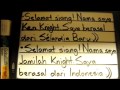 -Selamat siang! Nama saya
Ken Knight Saya berasal
dari Selandia Baru.))
-Selamat siang! Nama saya
Jamilah Knight Saya
berasal dari Indonesia.))